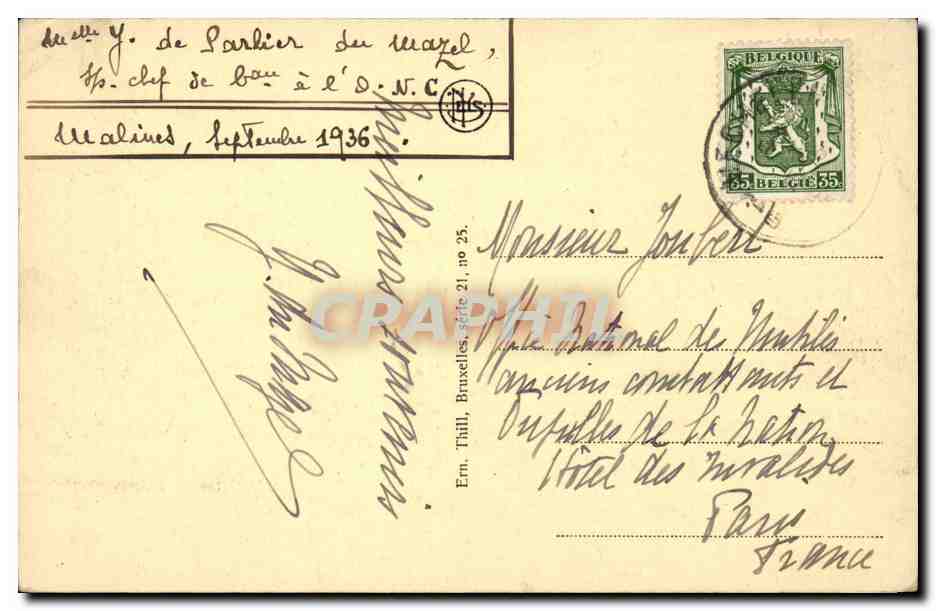 Melle Y. de Parlier du Mazel,
s/s-chef de bau à l'O.N.C.
Malines, Septembre 1936
Meilleurs souvenirs
Y. du Mazel
Ern. Thill, Bruxelles, série 21, no 25.
BELGIQUE
35 BELGIË 35
Monsieur Joubert
Office National des Mutilés
anciens combattants et
Pupilles de la Nation
Hôtel des Invalides
Paris
France
CPAPHIL